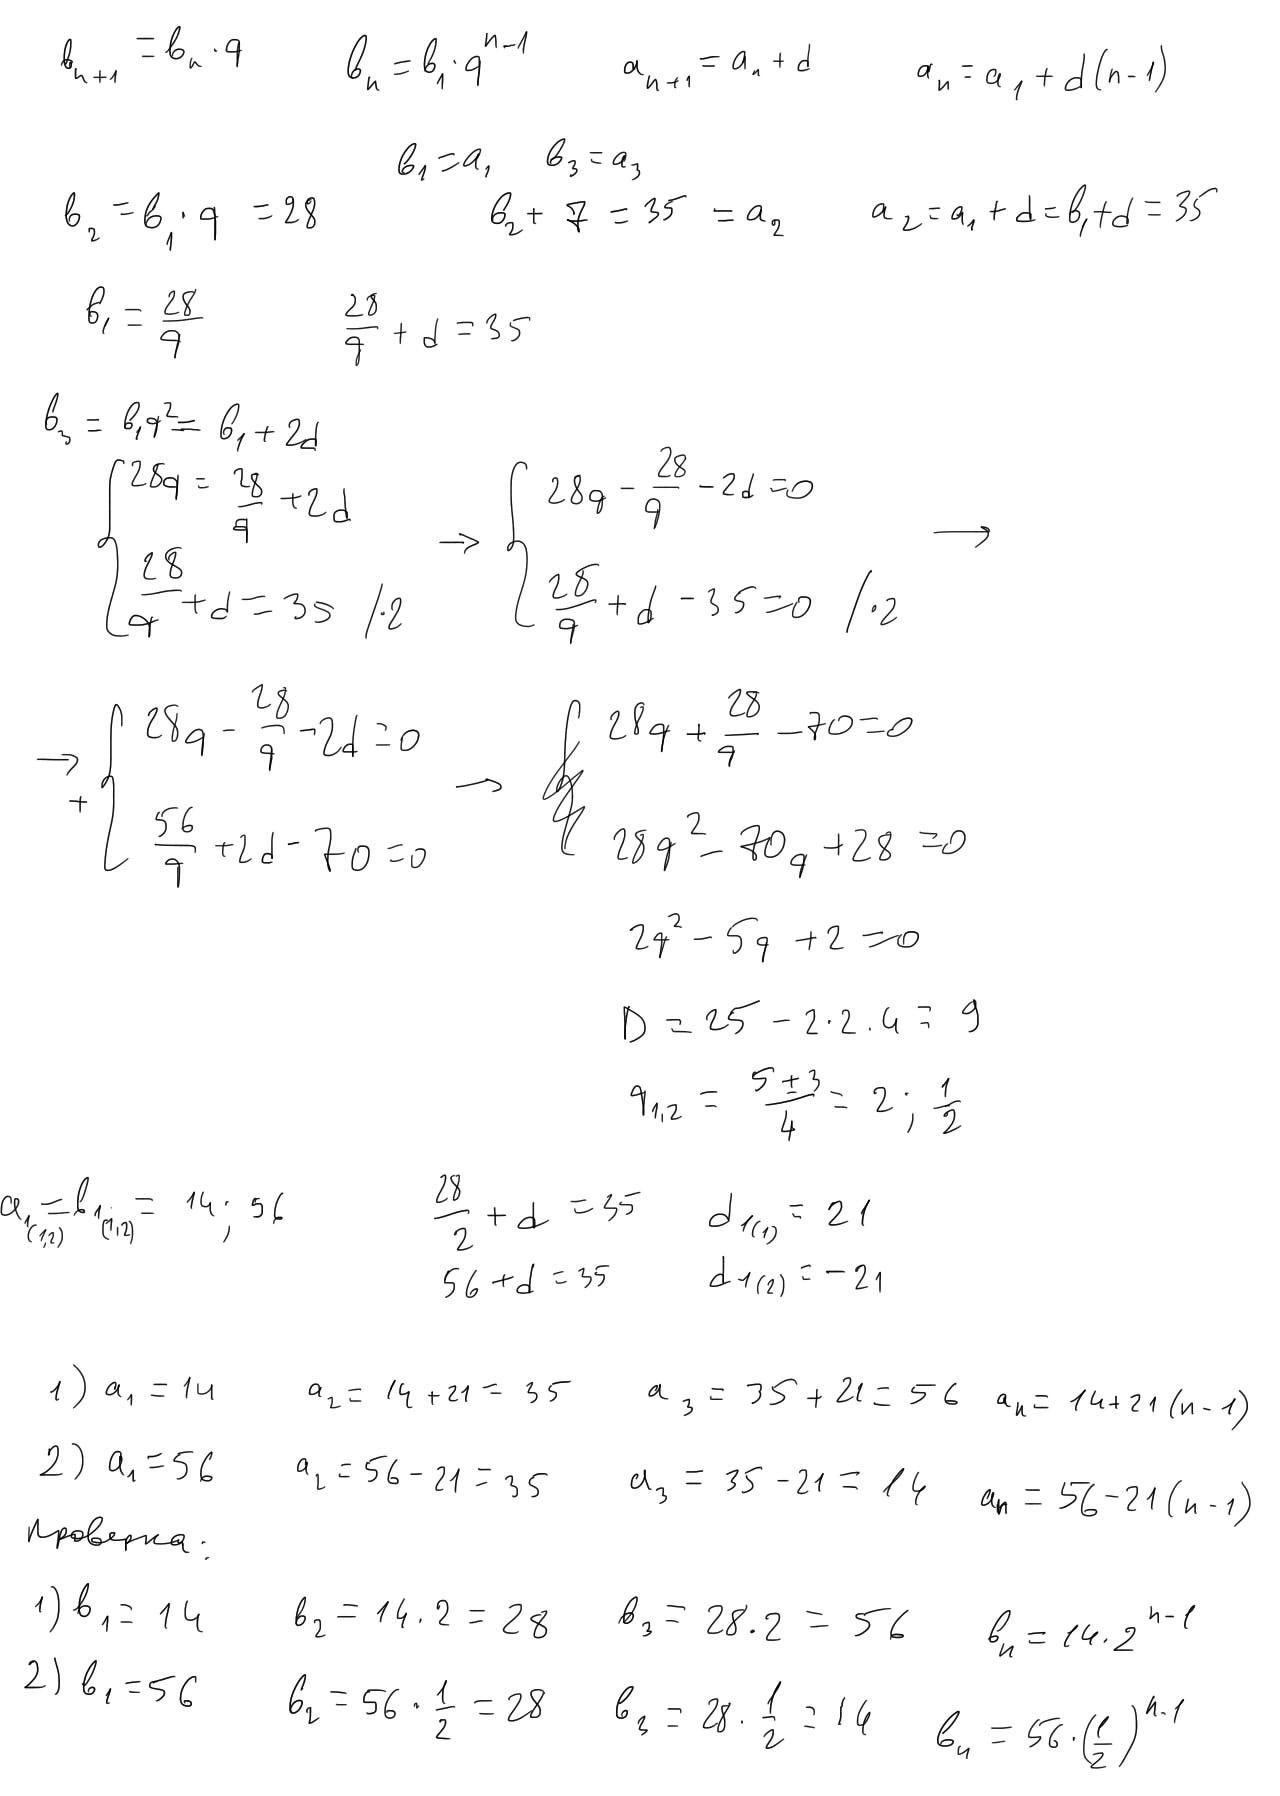 в_{n+1} = в_n · q    в_n = в_1 · q^{n-1}    a_{n+1} = a_n + d    a_n = a_1 + d(n-1)
в_1 = a_1    в_3 = a_3
в_2 = в_1 · q = 28    в_2 + 7 = 35 = a_2    a_2 = a_1 + d = в_1 + d = 35
в_1 = 28/q    28/q + d = 35
в_3 = в_1q^2 = в_1 + 2d
{ 28q = 28/q + 2d    → { 28q - 28/q - 2d = 0    →
28/q + d = 35 /·2    28/q + d - 35 = 0 /·2
→ + { 28q - 28/q - 2d = 0    → 28q + 28/q - 70 = 0
56/q + 2d - 70 = 0    28q^2 - 70q + 28 = 0
2q^2 - 5q + 2 = 0
D = 25 - 2·2·4 = 9
q_{1,2} = (5 ± 3)/4 = 2; 1/2
a_{1(1,2)} = в_{1(1,2)} = 14; 56    28/2 + d = 35    d_{1(1)} = 21
56 + d = 35    d_{1(2)} = -21
1) a_1 = 14    a_2 = 14 + 21 = 35    a_3 = 35 + 21 = 56    a_n = 14 + 21(n-1)
2) a_1 = 56    a_2 = 56 - 21 = 35    a_3 = 35 - 21 = 14    a_n = 56 - 21(n-1)
Проверка:
1) в_1 = 14    в_2 = 14·2 = 28    в_3 = 28·2 = 56    в_n = 14·2^{n-1}
2) в_1 = 56    в_2 = 56·1/2 = 28    в_3 = 28·1/2 = 14    в_n = 56·(1/2)^{n-1}